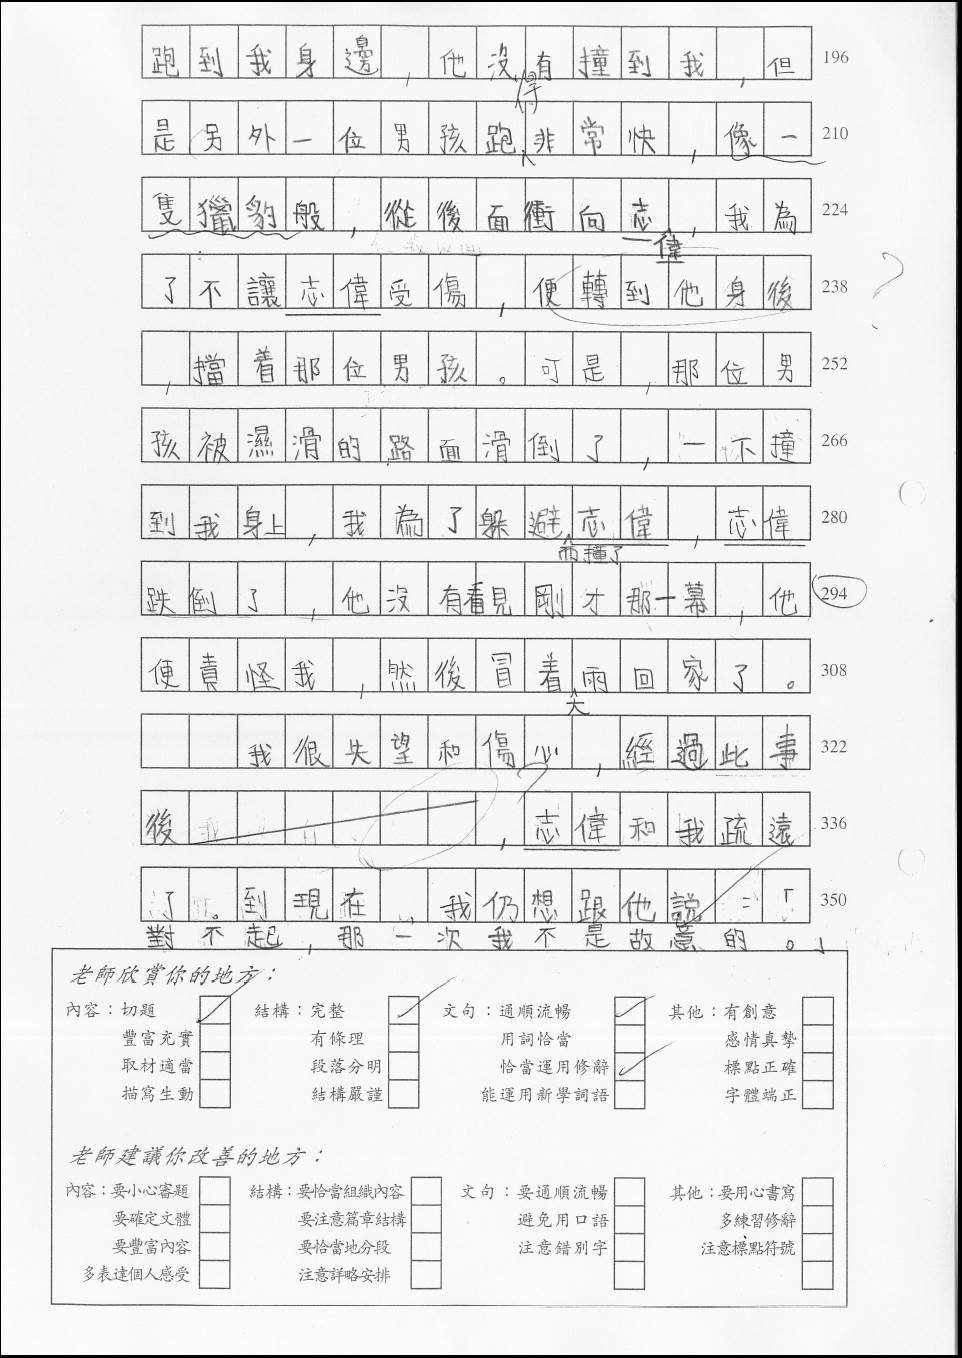 跑到我身邊，他沒有撞到我，但 196
得
是另外一位男孩跑非常快，像一 210
隻獵豹般，從後面衝向志，我為 224
偉
了不讓志偉受傷，便轉到他身後 238
?
，擋着那位男孩。可是，那位男 252
孩被濕滑的路面滑倒了，一不撞 266
到我身上，我為了躲避志偉，志偉 280
而撞了
跌倒了，他沒有看見剛才那一幕，他 294
便責怪我，然後冒着雨回家了。 308
大
我很失望和傷心，經過此事 322
?
後，志偉和我疏遠 336
了。到現在，我仍想跟他說：「 350
對不起，那一次我不是故意的。」
老師欣賞你的地方：
內容：切題 結構：完整 文句：通順流暢 其他：有創意
豐富充實 有條理 用詞恰當 感情真摯
取材適當 段落分明 恰當運用修辭 標點正確
描寫生動 結構嚴謹 能運用新學詞語 字體端正
老師建議你改善的地方：
內容：要小心審題 結構：要恰當組織內容 文句：要通順流暢 其他：要用心書寫
要確定文體 要注意篇章結構 避免用口語 多練習修辭
要豐富內容 要恰當地分段 注意錯別字 注意標點符號
多表達個人感受 注意詳略安排